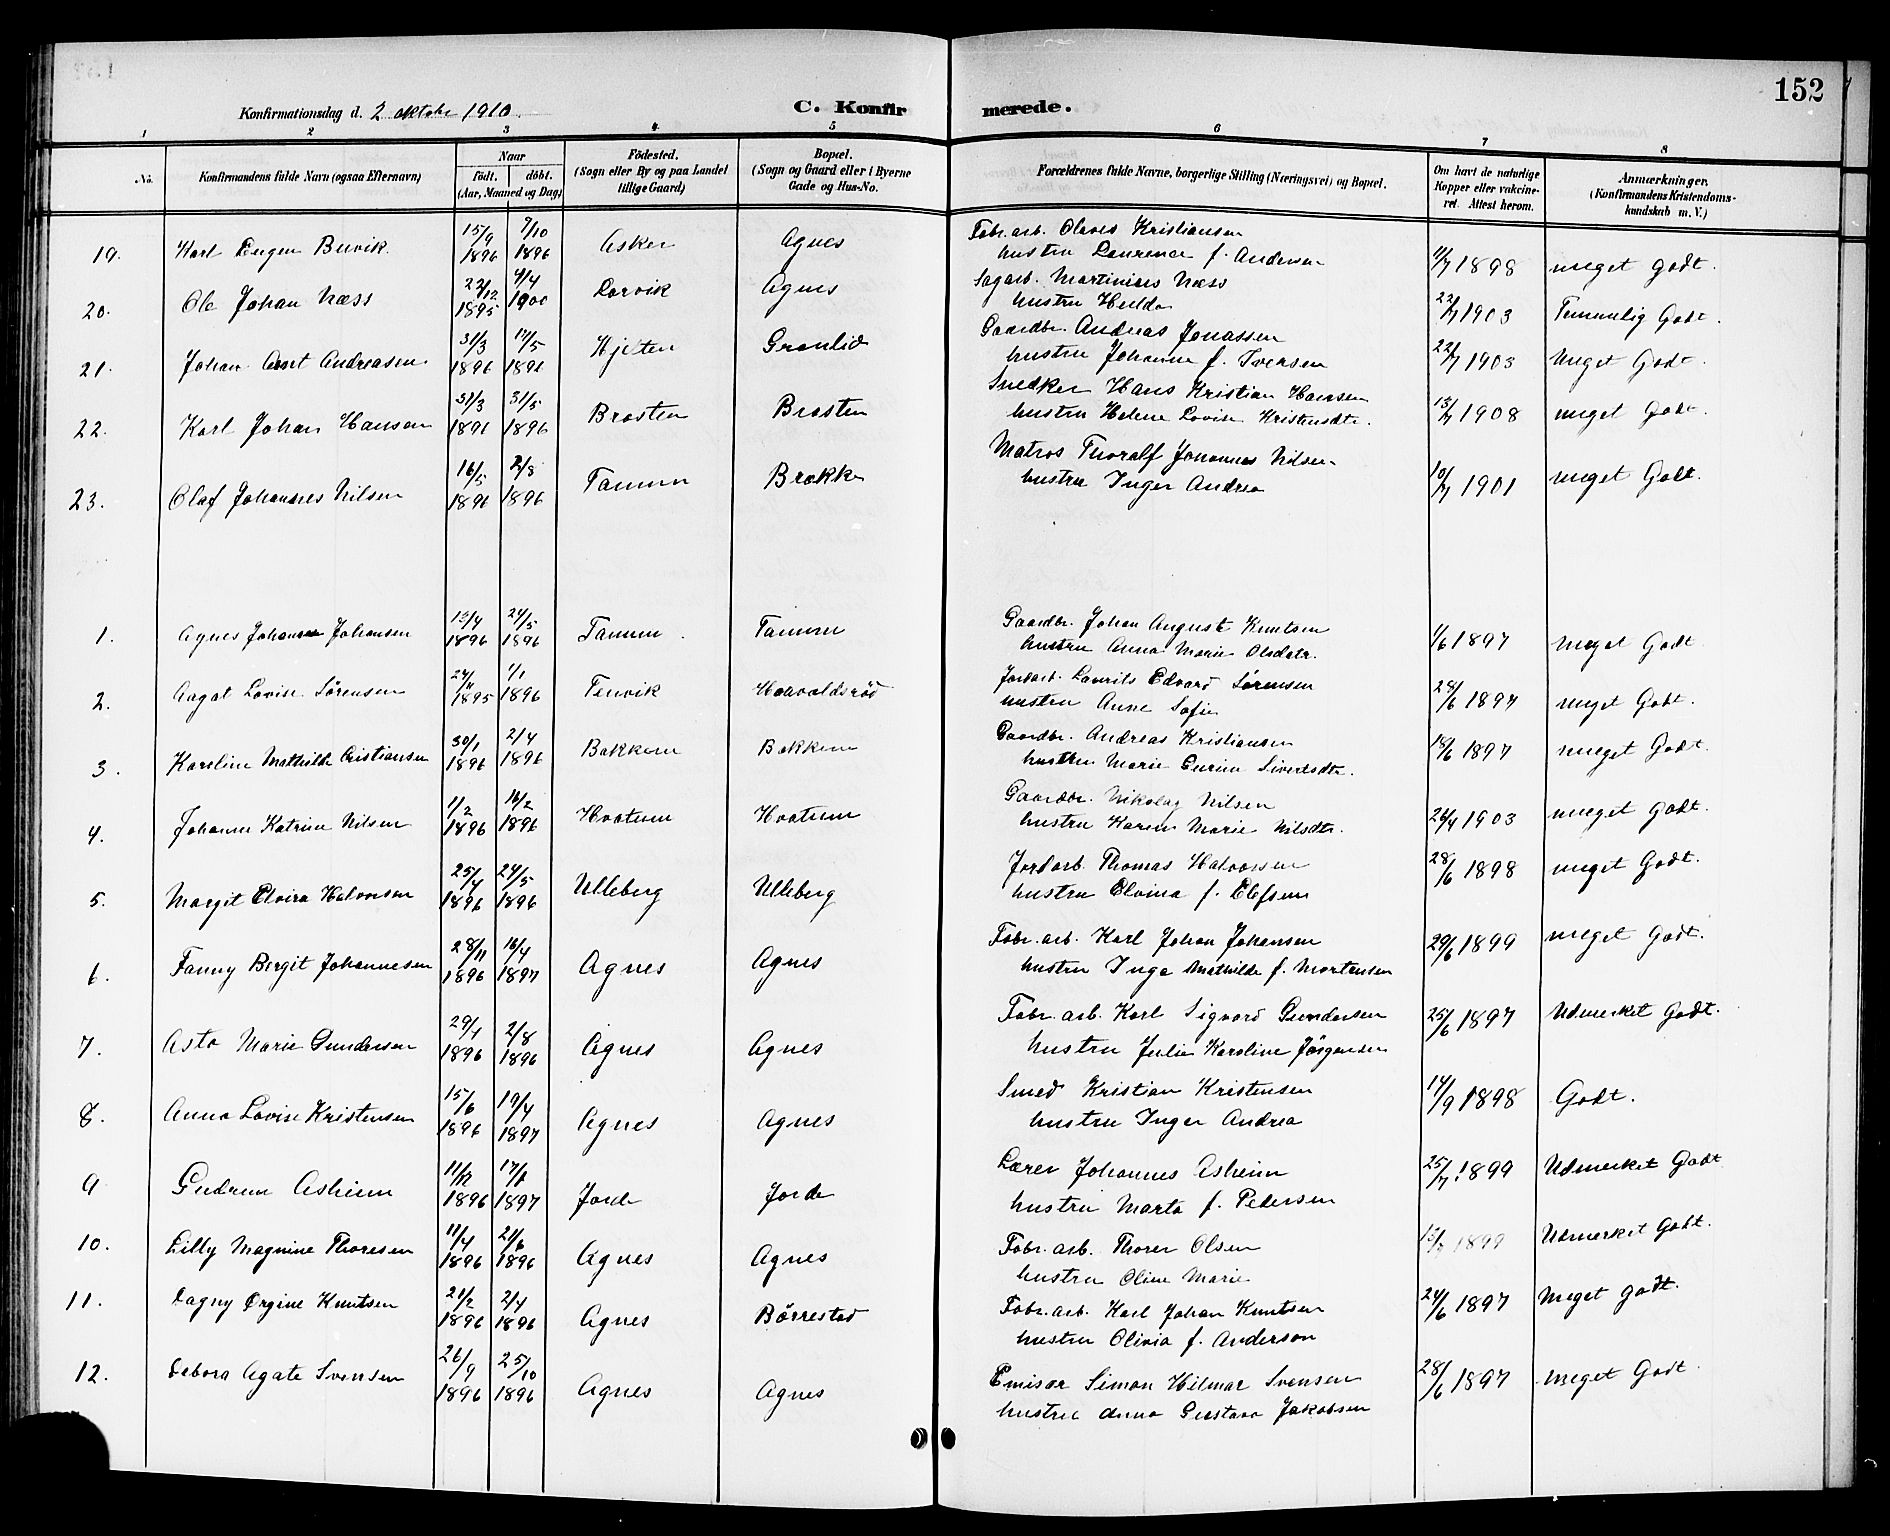 152
Konfirmationsdag d. 2 oktobr 1910. C. Konfirmerede.
1 2 3 4. 5 6 7 8
No. Konfirmandens fulde Navn (ogsaa Efternavn) Naar födt. döbt. (Aar, Maaned og Dag) Födested. (Sogn eller By og paa Landet tillige Gaard) Bopæl. (Sogn og Gaard eller i Byerne Gade og Hus-No. Forældrenes fulde Navne, borgerlige Stilling (Næringsvei) og Bopæl. Om havt de naturlige Kopper eller vakcineret. Attest herom. Anmærkninger. (Konfirmandens Kristendomskundskab m. V.)
19. Karl Eugen Buvik. 15/9 1896 7/10 1896 Asker Agnes Fabr. arb. Olaves Kristiansen
hustru Laurence f. Andersen 11/7 1898 meget godt.
20. Ole Johan Næss 22/12 1895 4/4 1900 Larvik Agnes Sagarb. Martinius Næss
hustru Hulda 22/7 1903 Temmelig Godt.
21. Johan Arnt Andreasen 31/3 1896 17/5 1896 Hjelten Grønlid Gaardbr. Andreas Jonassen
hustru Johanne f. Iversen 22/7 1903 Meget Godt.
22. Karl Johan Hansen 31/3 1896 31/5 1896 Bråten Bråten Snedker Hans Kristian Hansen
hustru Helene Lovise Kristensdtr. 13/7 1908 meget Godt.
23. Olaf Johannes Nilsen 16/5 1896 2/8 1896 Tanum Brekke Matros Thoralf Johannes Nilsen
hustru Inger Andrea 10/7 1901 meget Godt.
1. Agnes Johanne Johansen 13/4 1896 24/5 1896 Tanum Tanum Gaardbr. Johan August Knutsen
hustru Anna Marie Olsdatr. 1/6 1897 meget Godt
2. Aagot Lovise Sørensen 24/11 1895 1/1 1896 Tenvik Haavaldsrød Jordarb. Laurits Edvard Sørensen
hustru Anne Sofie 28/6 1897 meget Godt.
3. Karoline Mathilde Cristiansen 30/1 1896 2/4 1896 Bakkene Bakkene Gaardbr. Andreas Kristiansen
hustru Marie Gurine Sivertsdtr. 18/6 1897 meget Godt.
4. Johanne Katrine Nilsen 1/2 1896 16/2 1896 Hvatum Hvatum Gaardbr. Nikolay Nilsen
hustru Karen Marie Nilsdtr. 26/7 1903 meget Godt.
5. Margit Elvira Halvorsen 25/4 1896 24/5 1896 Ulleberg Ulleberg Jordarb. Thomas Halvorsen
hustru Elvina f. Elefsen 28/6 1898 meget Godt.
6. Fanny Birgit Johannesen 28/11 1896 16/4 1897 Agnes Agnes Fabr. arb. Karl Johan Johansen
hustru Inga Mathilde f. Mortensen 29/6 1899 meget Godt.
7. Asta Marie Gundersen 29/4 1896 2/8 1896 Agnes Agnes Fabr. arb. Karl Sigvard Gundersen
hustru Julie Karoline Jørgensen 25/6 1897 Udmerket Godt.
8. Anna Lovise Kristensen 15/6 1896 19/4 1897 Agnes Agnes Smed Kristian Kristensen
hustru Inger Andrea 14/9 1898 Godt.
9 Gudrun Asheim 11/12 1896 17/1 1897 Jorde Jorde Lærer Johannes Asheim
hustru Marta f. Pedersen 25/7 1899 Udmerket Godt
10. Lilly Magnine Thoresen 11/4 1896 21/6 1896 Agnes Agnes Fabr. arb. Thorer Olsen
hustru Oline Marie 13/7 1899 Udmerket Godt.
11. Dagny Ørgine Knutsen 21/2 1896 2/4 1896 Agnes Børrestad Fabr. arb. Karl Johan Knutsen
hustru Olivia f. Anderson 24/6 1897 Meget godt.
12. Debora Agate Svensen 26/9 1896 25/10 1896 Agnes Agnes Emisær Simon Hilmar Svensen
hustru Anna Gustava Jakobsen 28/6 1897 meget Godt